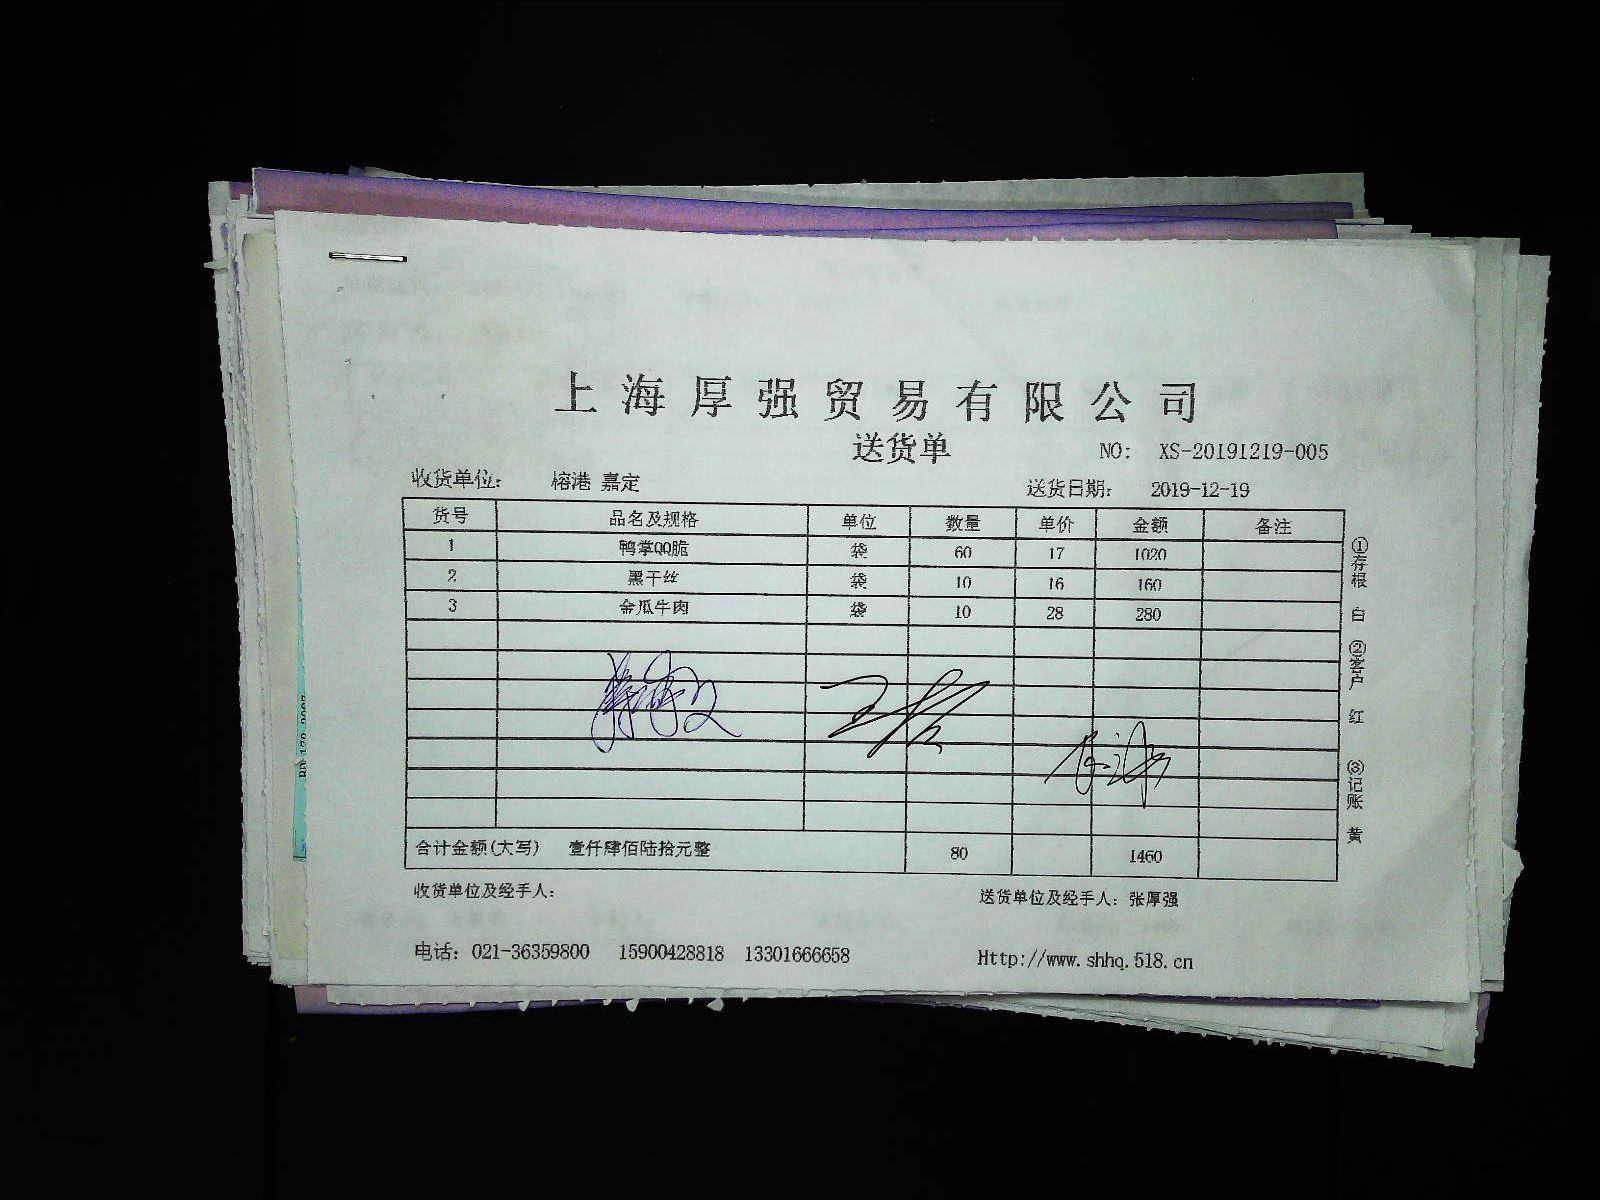 上海厚强贸易有限公司
送货单
NO: XS-20191219-005
收货单位: 榕港 嘉定
送货日期: 2019-12-19
货号 品名及规格 单位 数量 单价 金额 备注
1 鸭掌QQ脆 袋 60 17 1020
2 黑干丝 袋 10 16 160
3 金瓜牛肉 袋 10 28 280
合计金额(大写) 壹仟肆佰陆拾元整 80 1460
收货单位及经手人:
送货单位及经手人: 张厚强
电话: 021-36359800 15900428818 13301666658
Http://www.shhq.518.cn
①存根 白 ②客户 红 ③记账 黄